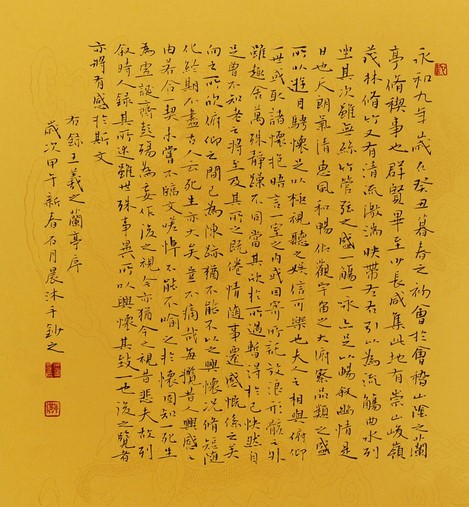 永和九年歲在癸丑暮春之初會於會稽山陰之蘭
亭脩禊事也群賢畢至少長咸集此地有崇山峻嶺
茂林脩竹又有清流激湍映帶左右引以為流觴曲水列
坐其次雖無絲竹管弦之盛一觴一詠亦足以暢敘幽情是
日也天朗氣清惠風和暢仰觀宇宙之大俯察品類之盛
所以遊目騁懷足以極視聽之娛信可樂也夫人之相與俯仰
一世或取諸懷抱晤言一室之內或因寄所託放浪形骸之外
雖趣舍萬殊靜躁不同當其欣於所遇暫得於己快然自
足曾不知老之將至及其所之既倦情隨事遷感慨係之矣
向之所欣俯仰之間已為陳跡猶不能不以之興懷況脩短隨
化終期於盡古人云死生亦大矣豈不痛哉每攬昔人興感之
由若合一契未嘗不臨文嗟悼不能不喻之於懷固知死生
為虛誕齊彭殤為妄作後之視今亦猶今之視昔悲夫故列
敘時人錄其所述雖世殊事異所以興懷其致一也後之覽者
亦將有感於斯文
右錄王羲之蘭亭序
歲次甲午新春石月晨沐手鈔之